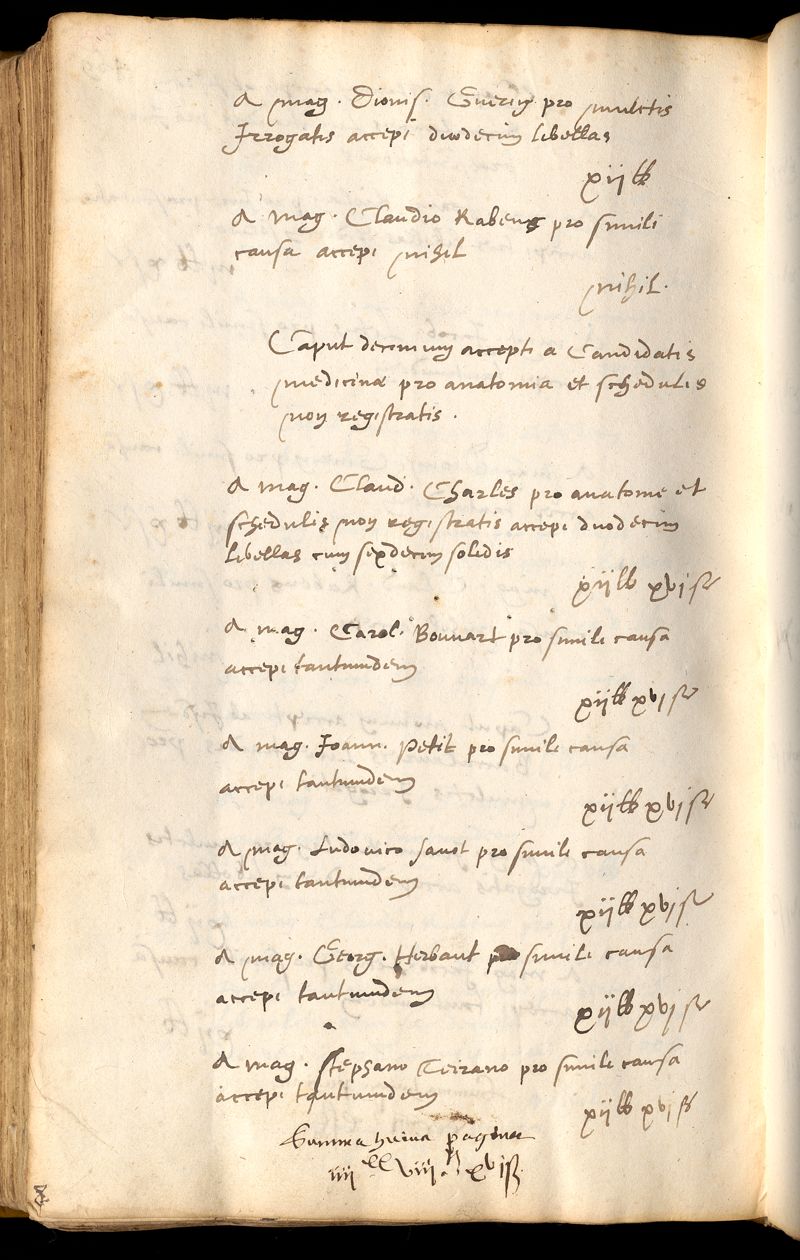 A mag. Dionis. Guerin pro mulctis
Irrogatis accepi duodecim libellas
xij ll
A mag. Claudio Rabens pro simili
causa accepi nihil
nihil.
Caput decimum accepti a Candidatis
medicinæ pro anatomia et schedulis
non registratis.
A mag. Claud. Charles pro anatome et
schedulis non registratis accepi duodecim
libellas cum sexdecim solidis
xij ll xvj s
A mag. Carol. Bouuart pro simili causa
accepi tantumdem
xij ll xvj s
A mag. Joann. Petit pro simili causa
accepi tantumdem
xij ll xvj s
A mag. Ludouico sauot pro simili causa
accepi tantumdem
xij ll xvj s
A mag. Georg. Herbaut pro simili causa
accepi tantumdem
xij ll xvj s
A mag. stephano pro simili causa
accepi tantumdem
xij ll xvj s
Summa huius paginæ
iiii viii xvj s